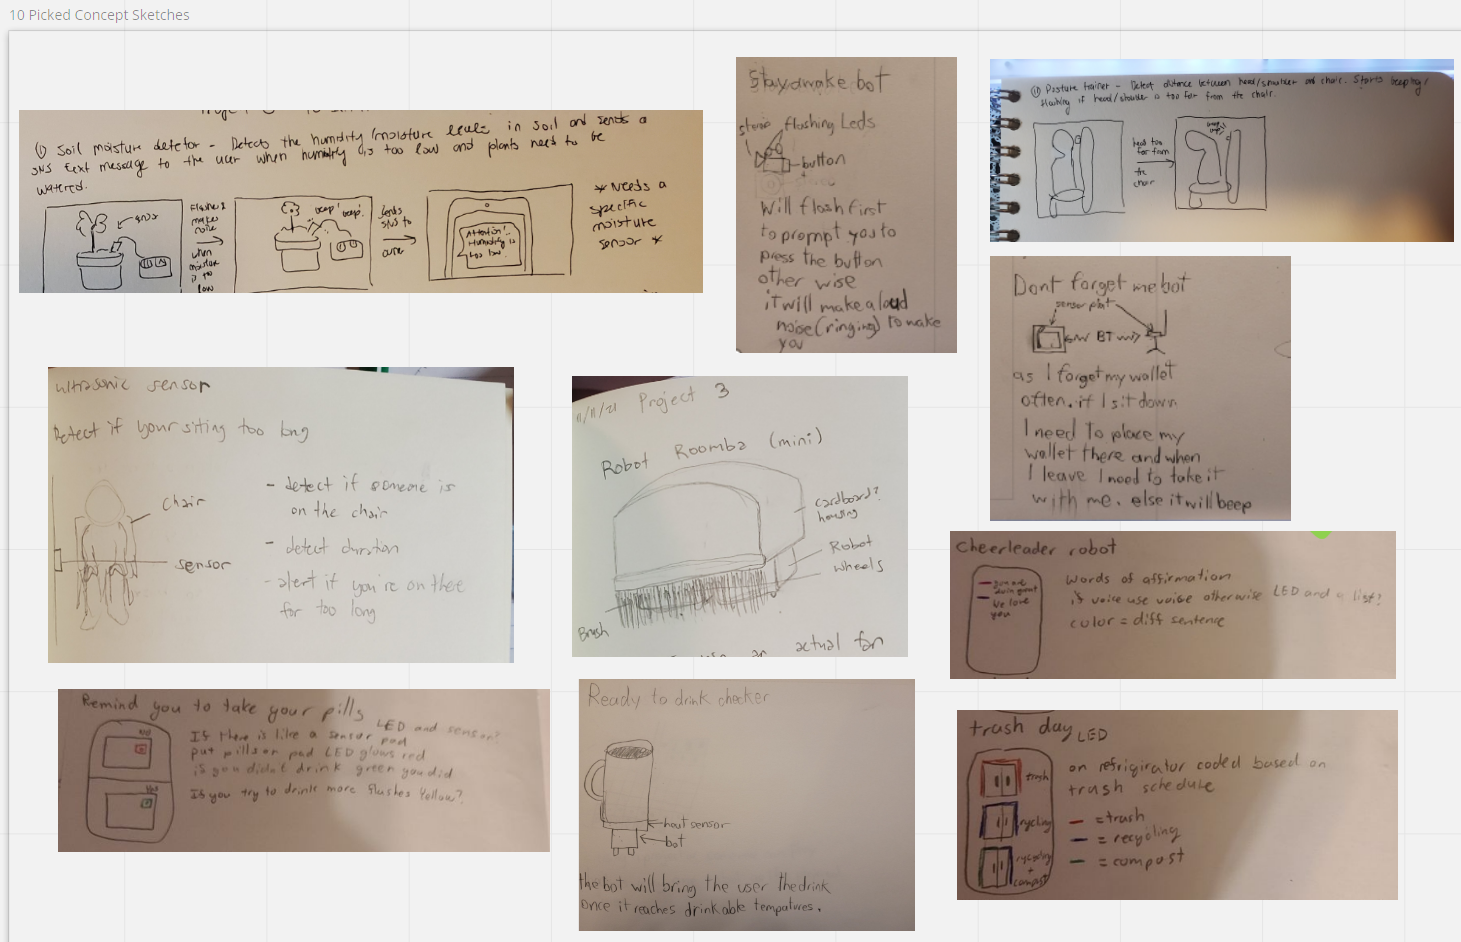 10 Picked Concept Sketches
(1) Soil moisture detetor - Detects the humidity/moisture levels in soil and sends a
SMS text message to the user when humidity is too low and plants need to be
watered.
Flashes &
makes
noise
when
moisture
is too
low
beep! beep!
Sends
SMS to
Attention!
Humidity is
too low.
* Needs a
specific
moisture
sensor *
Stay awake bot
flashing Leds
button
Will flash first
to prompt you to
press the button
other wise
it will make a loud
noise (ringing) to wake
you
Posture trainer - Detect distance between head/shoulder and chair. Starts beeping/
flashing if head/shoulder is too far from the chair.
head too
far from
the
chair
Dont forget me bot
sensor point
BT
as I forget my wallet
often. if I sit down
I need to place my
wallet there and when
I leave I need to take it
with me. else it will beep
ultrasonic sensor
Detect if your siting too long
chair
sensor
- detect if someone is
on the chair
- detect duration
- alert if you're on there
for too long
11/11/21 Project 3
Robot Roomba (mini)
cardboard?
housing
Robot
wheels
Brush
actual fan
Cheerleader robot
you are
doin great
We love
you
words of affirmation
if voice use voice otherwise LED and a list?
color = diff sentence
Remind you to take your pills
LED and sensor?
If there is like a sensor pad
put pills on pad LED glows red
if you didnt drink green you did
If you try to drink more flashes Yellow?
Ready to drink checker
heat sensor
bot
the bot will bring the user the drink
once it reaches drinkable tempatures.
trash day LED
trash
rycyling
rycyling
+
compost
on refrigirator coded based on
trash schedule
= trash
= recycling
= compost